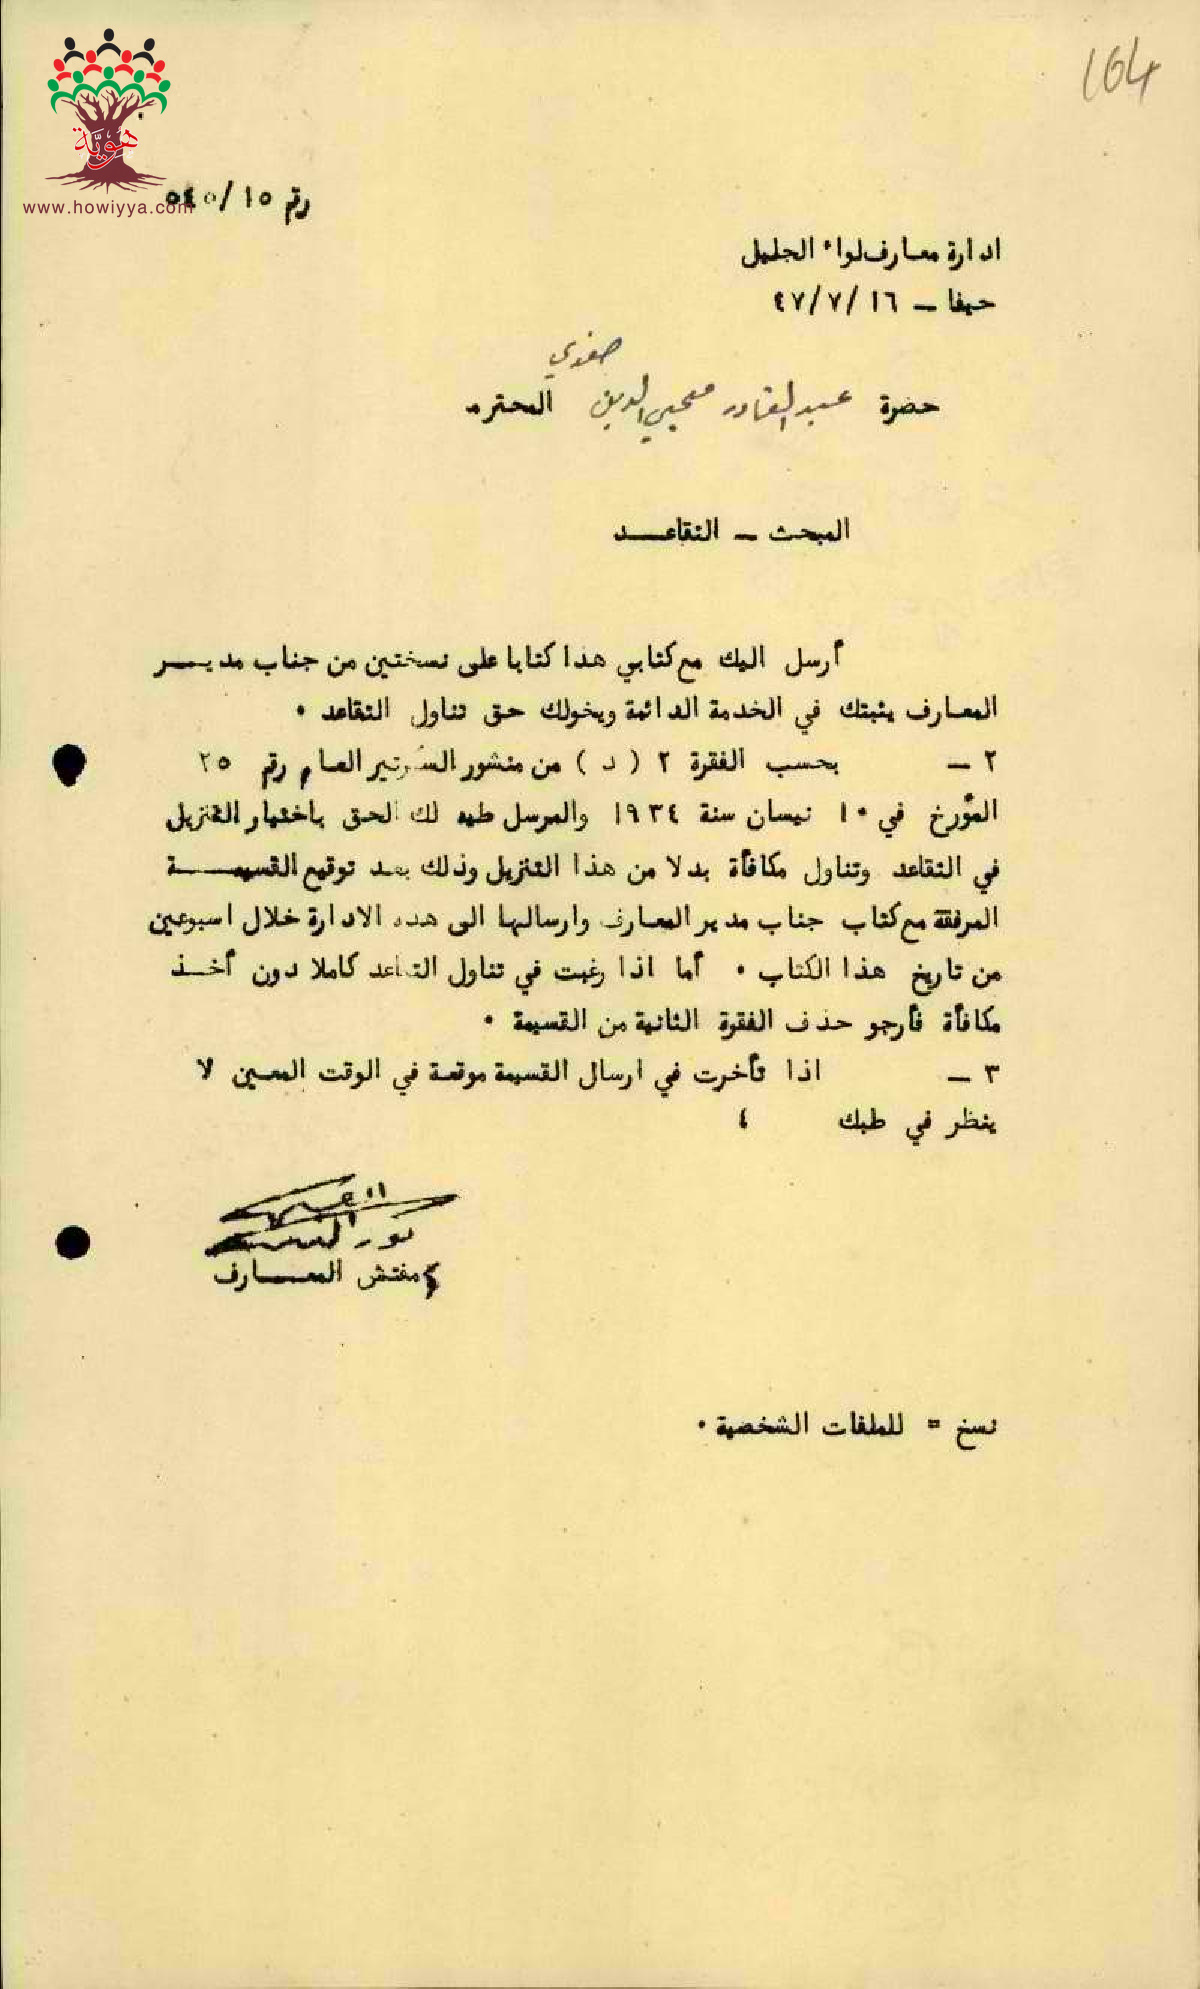 164
هويّة
www.howiyya.com
رقم ١٥/٥٤٥
ادارة معارف لواء الجليل
حيفا ــ ٤٧/٧/١٦
صفدي
حضرة عبد القادر محيي الدين المحترم
المبحث ــ التقاعــد
أرسل اليك مع كتابي هذا كتابا على نسختين من جناب مديــر
المعارف يثبتك في الخدمة الدائمة ويخولك حق تناول التقاعد ٠
٢ ــ بحسب الفقرة ٢ ( د ) من منشور السكرتير العام رقم ٢٥
المؤرخ في ١٠ نيسان سنة ١٩٣٤ والمرسل طيه لك الحق باختيار التنزيل
في التقاعد وتناول مكافأة بدلا من هذا التنزيل وذلك بعد توقيع القسيمــة
المرفقة مع كتاب جناب مدير المعارف وارسالها الى هذه الادارة خلال اسبوعين
من تاريخ هذا الكتاب ٠ أما اذا رغبت في تناول التقاعد كاملا دون أخــذ
مكافأة فأرجو حذف الفقرة الثانية من القسيمة ٠
٣ ــ اذا تأخرت في ارسال القسيمة موقعة في الوقت المعين لا
ينظر في طبك ٤
مفتش المعــارف
نسخ = للملفات الشخصية ٠